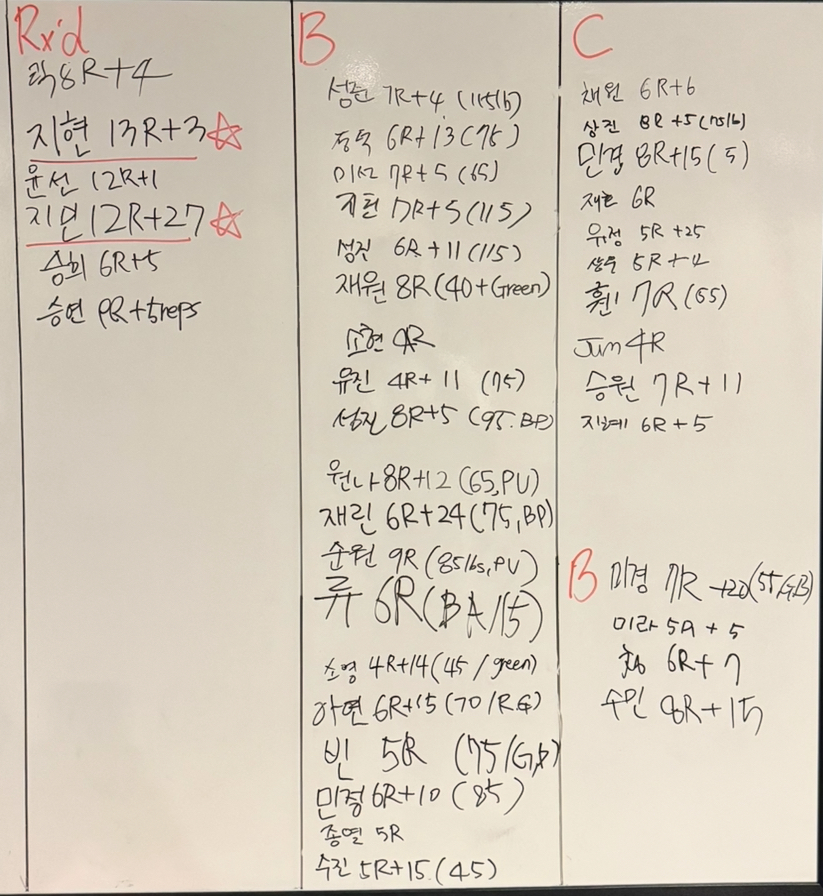 Rx'd
락 8R+4
지현 13R+3☆
윤선 12R+1
지면 12R+27☆
승희 6R+5
승연 9R+5reps
B
성준 7R+4 (115lb)
6R+13 (75)
미선 7R+5 (65)
지현 7R+5 (115)
성진 6R+11 (115)
재원 8R (40+Green)
소현 9R
유진 4R+11 (75)
성진 8R+5 (95.BP)
원나 8R+12 (65,PU)
재린 6R+24 (75,BP)
순원 9R (85lbs,PU)
류 6R (BA/15)
소영 4R+14 (45/green)
아연 6R+15 (70/RG)
빈 5R (75/G)
민정 6R+10 (85)
종열 5R
수진 5R+15 (45)
C
채원 6R+6
상진 8R+5 (75lb)
민경 8R+15 (5)
6R
유정 5R+25
5R+4
훤 7R (65)
Jun 4R
승원 7R+11
지혜 6R+5
B
미경 7R+20 (55/GB)
미라 5R+5
6R+7
수민 8R+15